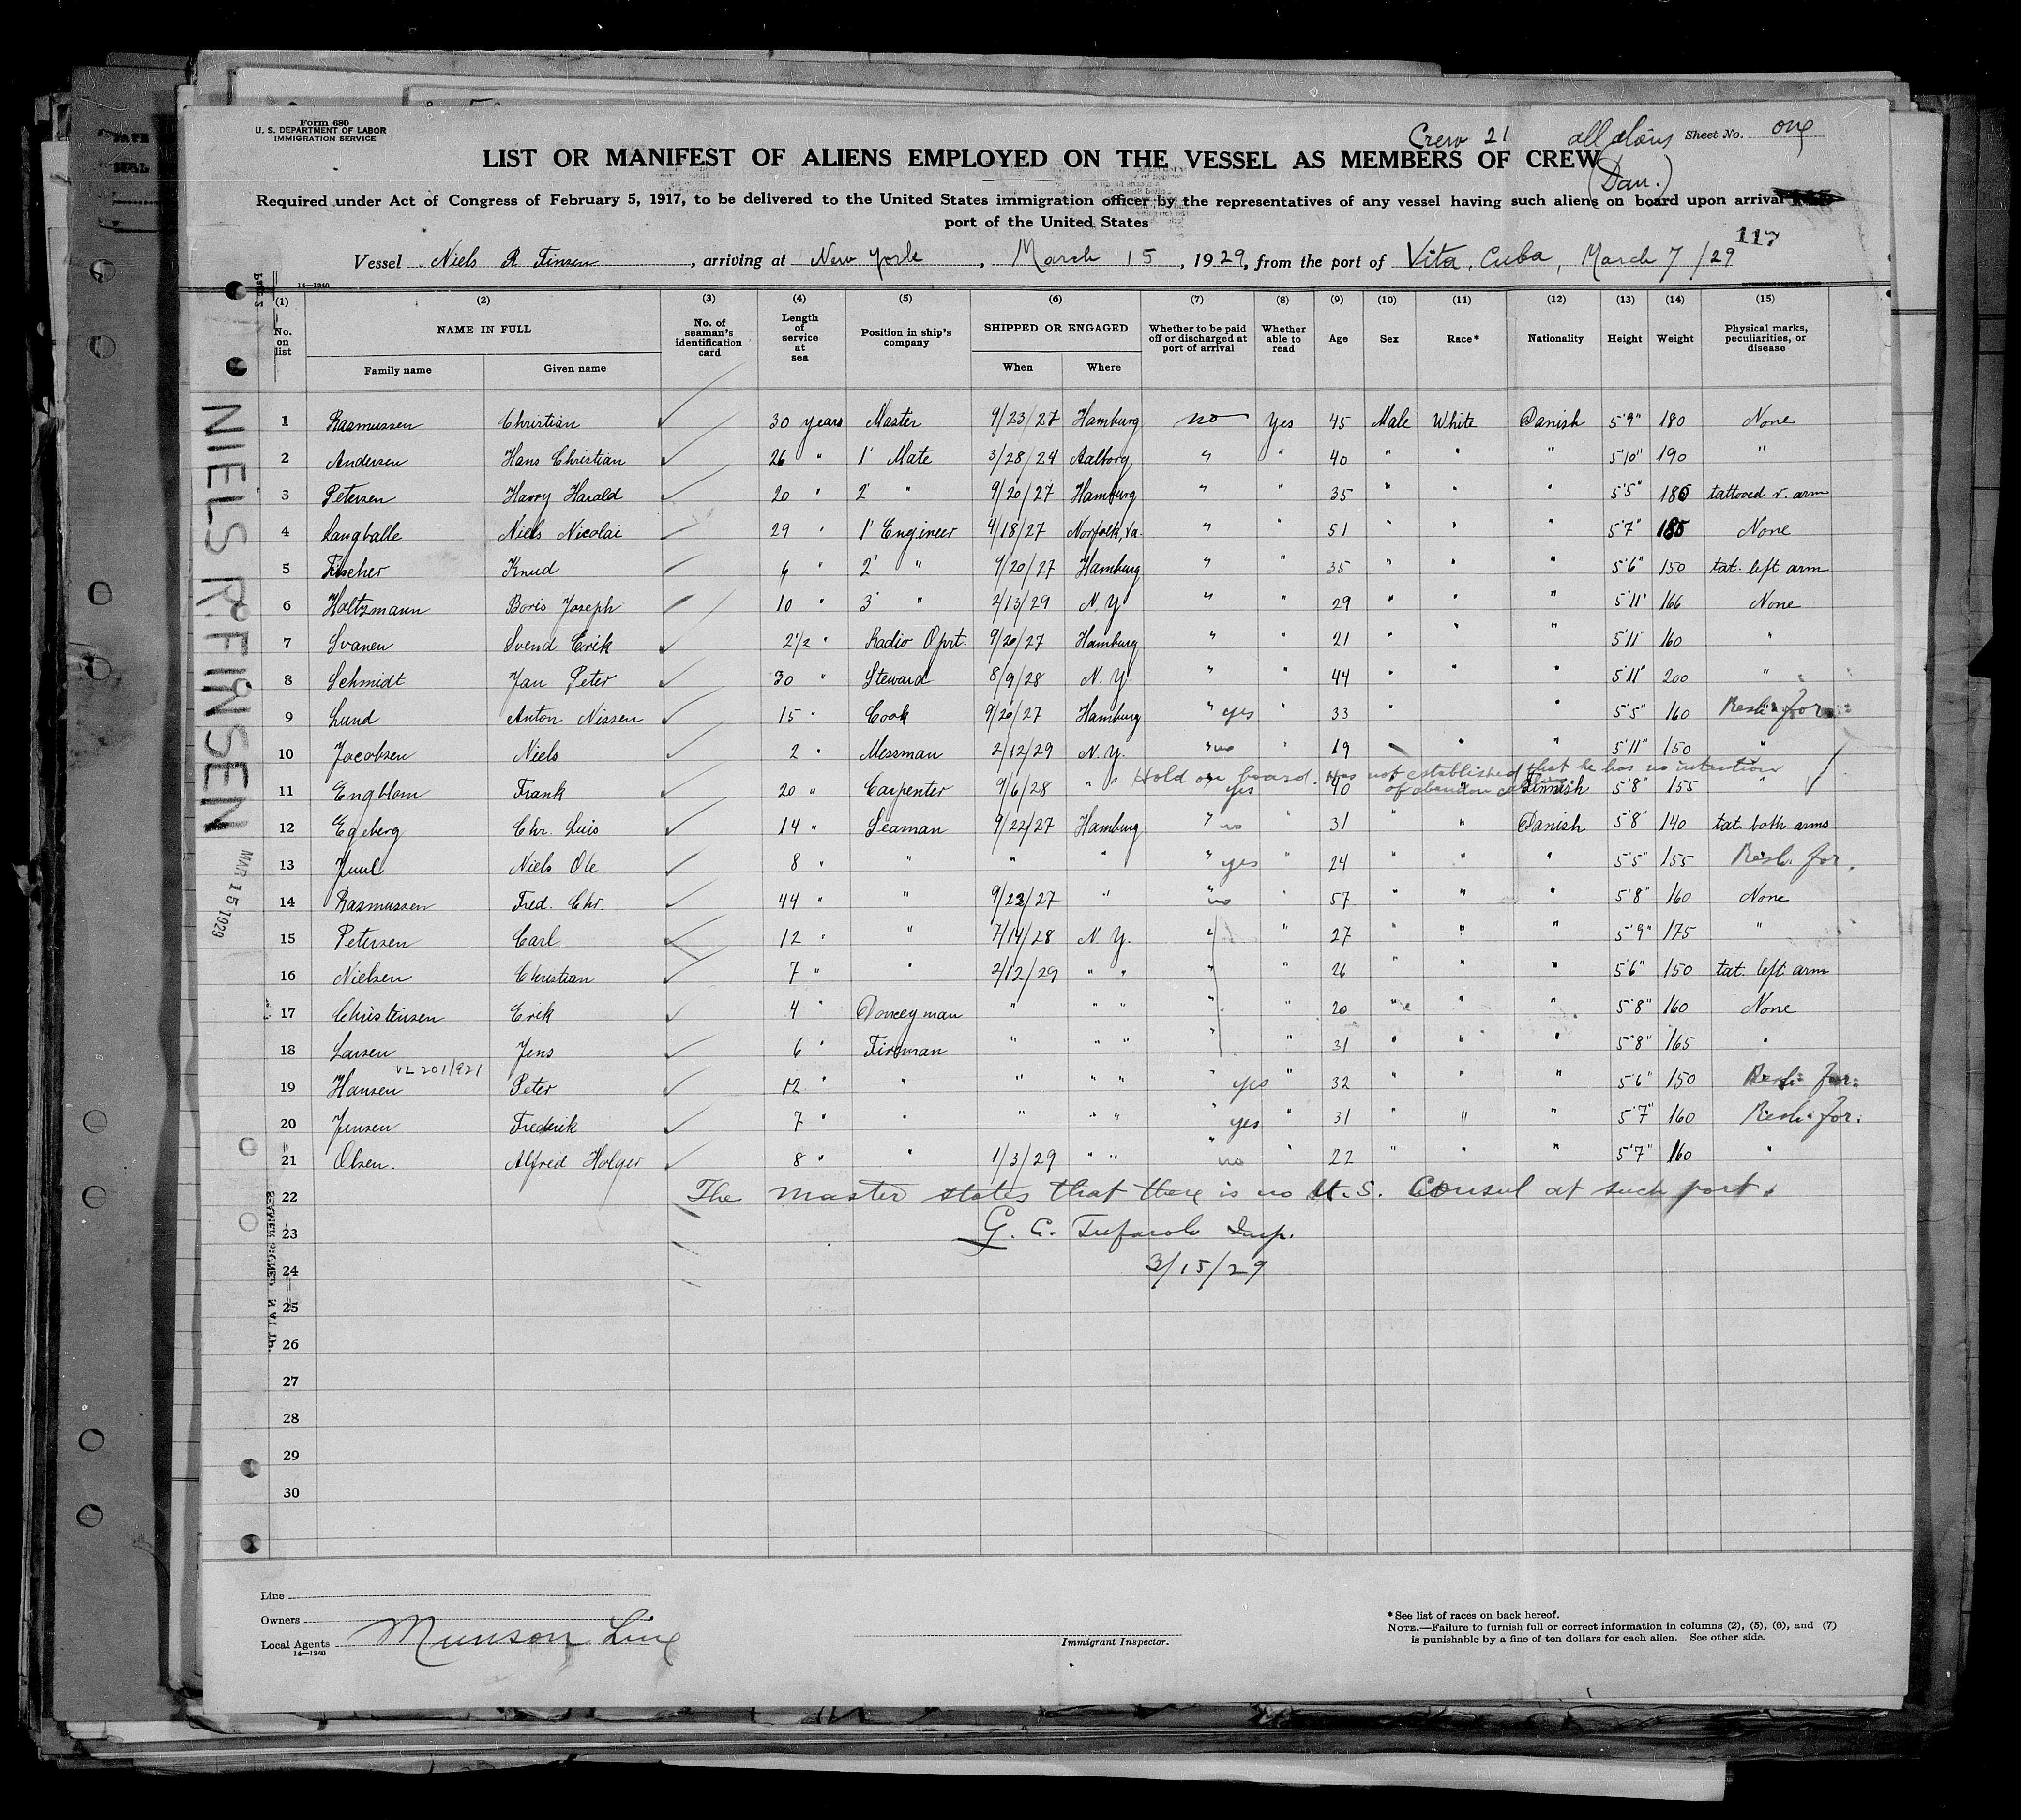 Form 680
U. S. DEPARTMENT OF LABOR
IMMIGRATION SERVICE
Crew 21 all aliens Sheet No. one
LIST OR MANIFEST OF ALIENS EMPLOYED ON THE VESSEL AS MEMBERS OF CREW
(Dan.)
Required under Act of Congress of February 5, 1917, to be delivered to the United States immigration officer by the representatives of any vessel having such aliens on board upon arrival
port of the United States
117
Vessel Niels R Finsen, arriving at New York, March 15, 1929, from the port of Vita, Cuba, March 7/29
14—1240
(1) (2) (3) (4) (5) (6) (7) (8) (9) (10) (11) (12) (13) (14) (15)
No. on list NAME IN FULL No. of seaman's identification card Length of service at sea Position in ship's company SHIPPED OR ENGAGED Whether to be paid off or discharged at port of arrival Whether able to read Age Sex Race* Nationality Height Weight Physical marks, peculiarities, or disease
Family name Given name When Where
1 Rasmussen Christian 30 years Master 9/23/27 Hamburg no Yes 45 Male White Danish 5'9" 180 None
2 Andersen Hans Christian 26 " 1' Mate 3/28/24 Aalborg " " 40 " " " 5'10" 190 "
3 Petersen Harry Harald 20 " 2' " 9/20/27 Hamburg " " 35 " " " 5'5" 180 tattooed r. arm
4 Langballe Niels Nicolai 29 " 1' Engineer 4/18/27 Norfolk, Va. " " 51 " " " 5'7" 185 None
5 Fischer Knud 6 " 2' " 9/20/27 Hamburg " " 35 " " " 5'6" 150 tat. left arm
6 Holtzmann Boris Joseph 10 " 3' " 2/13/29 N.Y. " " 29 " " " 5'11" 166 None
7 Svanen Svend Erik 2 1/2 " Radio Oprt. 9/20/27 Hamburg " " 21 " " " 5'11" 160 "
8 Schmidt Jan Peter 30 " Steward 8/9/28 N.Y. " " 44 " " " 5'11" 200 "
9 Lund Anton Nissen 15 " Cook 9/20/27 Hamburg " yes " 33 " " " 5'5" 160 Resh. for
10 Jacobsen Niels 2 " Messman 2/12/29 N.Y. " no " 19 " " 5'11" 150 "
Hold on board. Has not established that he has no intention
of abandon calling
11 Engblom Frank 20 " Carpenter 9/6/28 " " yes 40 " Finnish 5'8" 155 "
12 Egeberg Chr. Luis 14 " Seaman 9/22/27 Hamburg " no " 31 " " Danish 5'8" 140 tat. both arms
13 Juul Niels Ole 8 " " " " " yes " 24 " " " 5'5" 155 Resh. for.
14 Rasmussen Fred. Chr. 44 " " 9/23/27 " " no " 57 " " " 5'8" 160 None
15 Petersen Carl 12 " " 7/14/28 N.Y. " " 27 " " " 5'9" 175 "
16 Nielsen Christian 7 " " 2/12/29 " " " 26 " " " 5'6" 150 tat. left arm
17 Christensen Erik 4 " Donceyman " " " " " 20 " " " 5'8" 160 None
18 Larsen Jens 6 " Fireman " " " " " 31 " " " 5'8" 165 "
VL 201/921
19 Hansen Peter 12 " " " " " " yes " 32 " " " 5'6" 150 Resh. for.
20 Jensen Frederik 7 " " " " " " yes " 31 " " " 5'7" 160 Resh. for.
21 Olsen. Alfred Holger 8 " " 1/3/29 " " " no " 22 " " " 5'7" 160 "
22 The master states that there is no U.S. Consul at such port.
23 G. C. Insp.
24 3/15/29
25
26
27
28
29
30
NIELS R. FINSEN
MAR 15 1929
Line
Owners
Local Agents Munson Line
14—1240
Immigrant Inspector.
*See list of races on back hereof.
NOTE.—Failure to furnish full or correct information in columns (2), (5), (6), and (7)
is punishable by a fine of ten dollars for each alien. See other side.